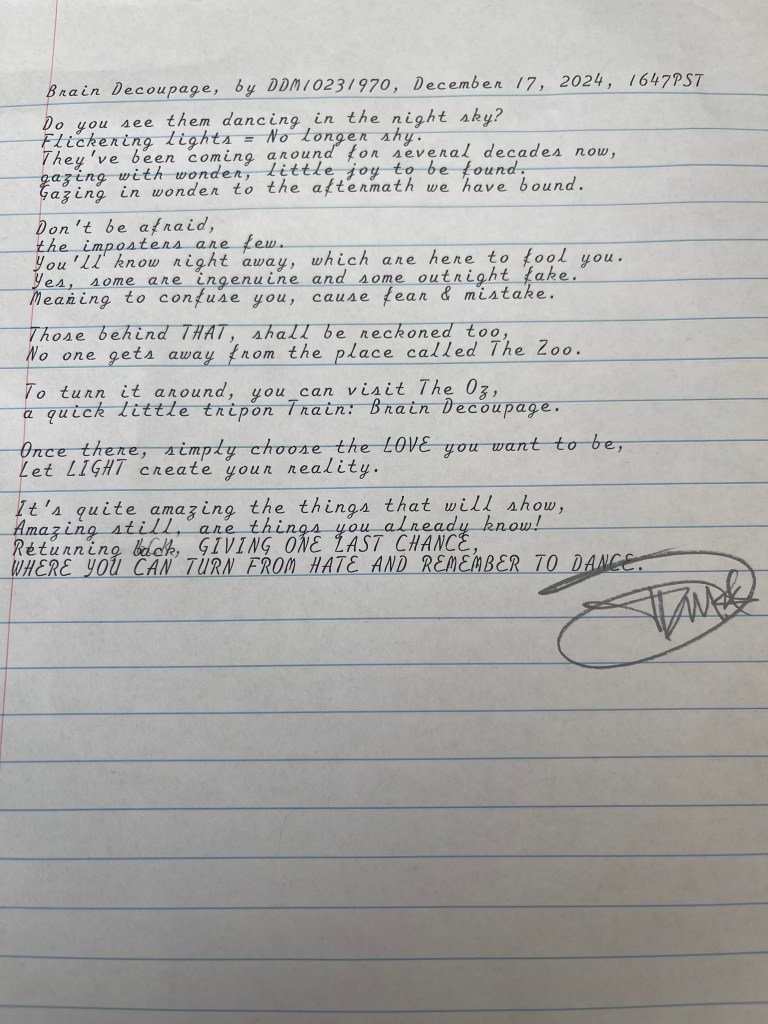 Brain Decoupage, by DDM10231970, December 17, 2024, 1647PST
Do you see them dancing in the night sky?
Flickering lights = No longer shy.
They've been coming around for several decades now,
gazing with wonder, little joy to be found.
Gazing in wonder to the aftermath we have bound.
Don't be afraid,
the imposters are few.
You'll know right away, which are here to fool you.
Yes, some are ingenuine and some outright fake.
Meaning to confuse you, cause fear & mistake.
Those behind THAT, shall be reckoned too,
No one gets away from the place called The Zoo.
To turn it around, you can visit The Oz,
a quick little tripon Train: Brain Decoupage.
Once there, simply choose the LOVE you want to be,
Let LIGHT create your reality.
It's quite amazing the things that will show,
Amazing still, are things you already know!
Returning back, GIVING ONE LAST CHANCE,
WHERE YOU CAN TURN FROM HATE AND REMEMBER TO DANCE.